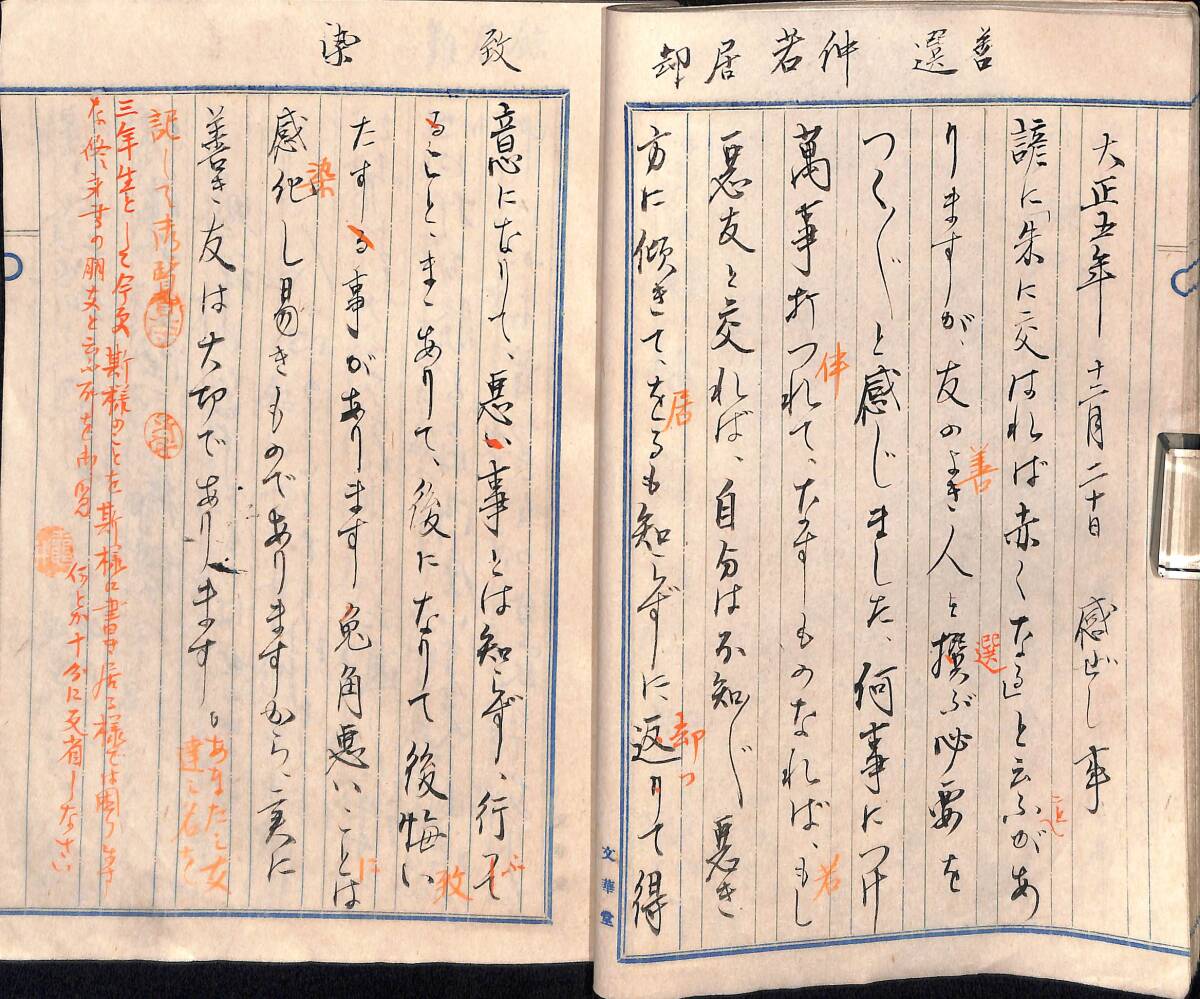 善 選 仲 若 居 却
大正五年十二月二十日 感ぜし事
諺に「朱に交はれば赤くなる」と云ふがあ
りますが、友のよき人を撰ぶ必要を
つく〲と感じました、何事につけ
萬事打つれて、なすものなれば、もし
悪友と交れば、自分は不知〲悪き
方に傾きて、をるも知らずに、返りて得
善
選
仲
若
居
却つ
文華堂
致 染
意になりて、悪い事とは知らず、行て
ることまゝありて、後になりて後悔い
たする事があります兎角悪いことは
感化し易きものでありますから、実に
善き友は大切であります。
ぶ
致
に
染
あなたこ友
達こ名を
記して御覧
三年生として今更斯様のことを斯様に書き居る様では困り事
な修身書の朋友と云ふ所を御覧
何とか十分に反省しなさい